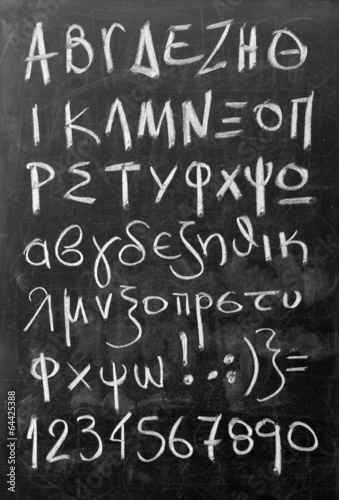 ΑΒΓΔΕΖΗΘ
ΙΚΛΜΝΞΟΠ
ΡΣΤΥΦΧΨΩ
αβγδεζηθικ
λμνξοπρςτυ
φχψω!.:;)}=
1234567890
Adobe Stock | #64425388